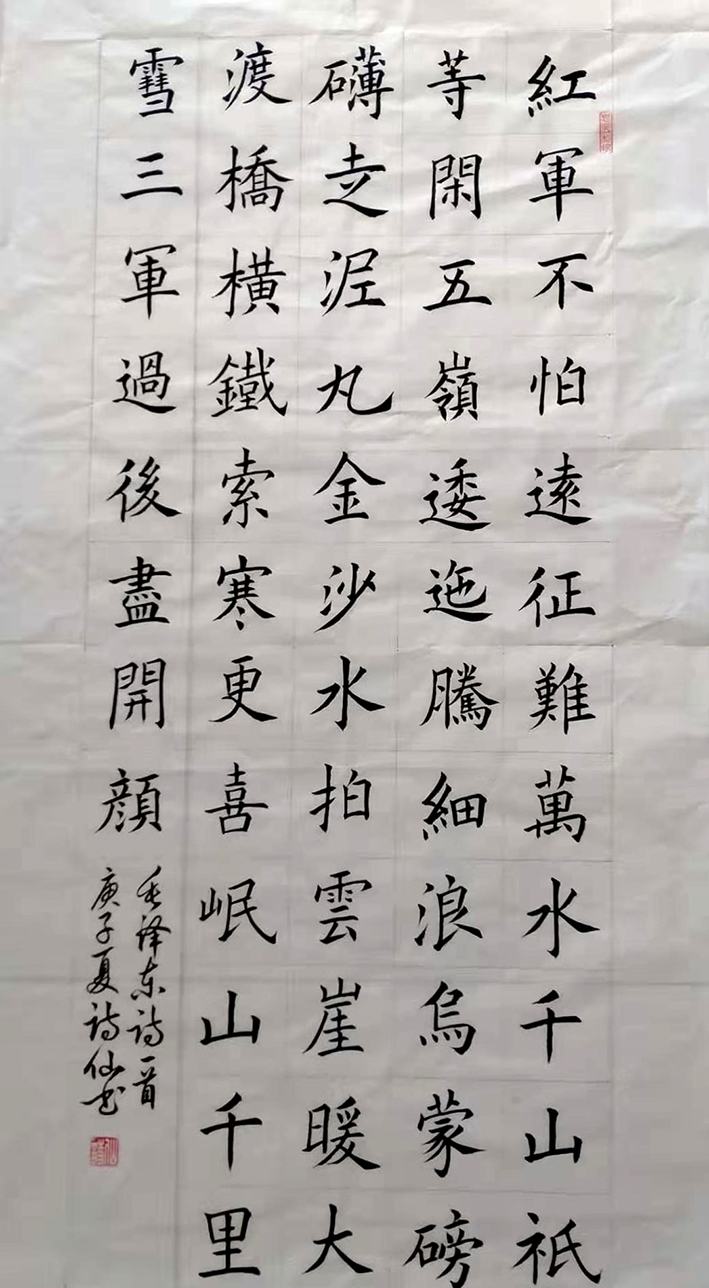 紅軍不怕遠征難萬水千山祇
等閑五嶺逶迤騰細浪烏蒙磅
礴走泥丸金沙水拍雲崖暖大
渡橋橫鐵索寒更喜岷山千里
雪三軍過後盡開顔
毛泽东诗一首
庚子夏诗仙书